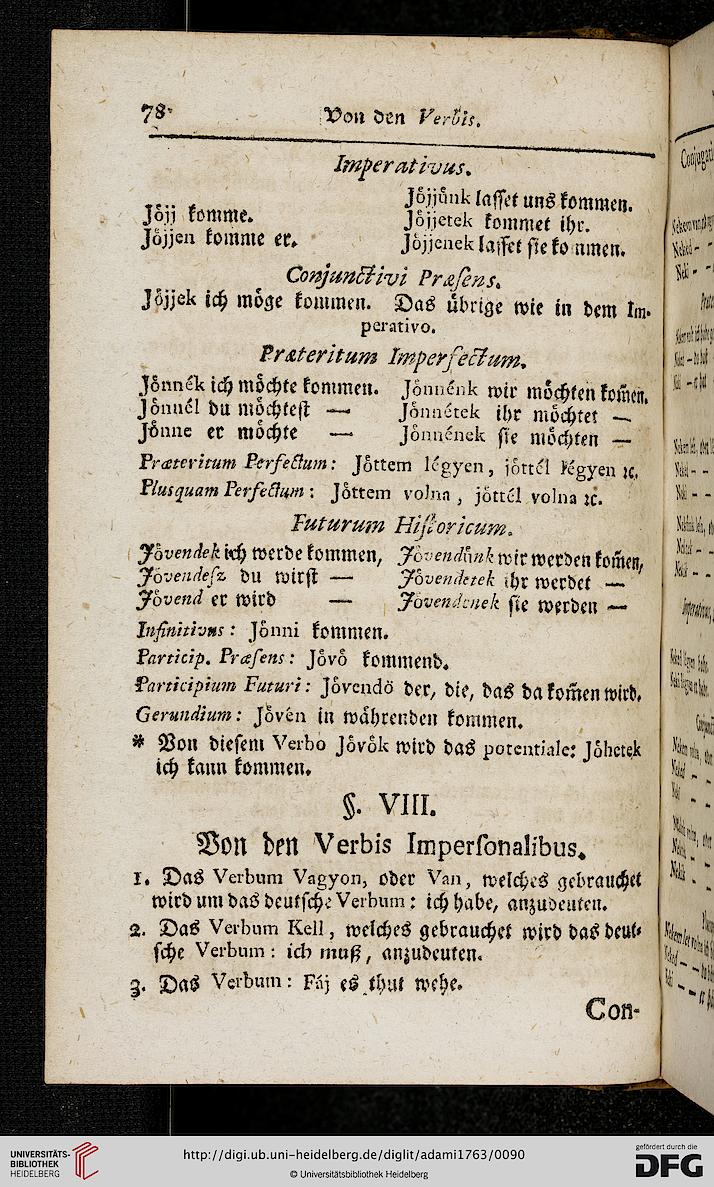 78
Von den Verbis.
Imperativus.
Jöjj komme.
Jöjjen komme er.
Jöjjünk lasset uns kommen.
Jöjjetek kommet ihr.
Jöjjenek lasset sie kommen.
Conjunctivi Præsens.
Jöjjek ich möge kommen. Das übrige wie in dem Im-
perativo.
Præteritum Imperfectum.
Jönnék ich möchte kommen. Jönnénk wir möchten kom̃en.
Jönnél du möchtest — Jönnétek ihr möchtet —
Jönne er möchte — Jönnének sie möchten —
Præteritum Perfectum: Jöttem légyen, jöttél légyen ꝛc.
Plusquam Perfectum: Jöttem volna, jöttél volna ꝛc.
Futurum Historicum.
Jövendek ich werde kommen, Jövendünk wir werden kom̃en,
Jövendesz du wirst — Jövendetek ihr werdet —
Jövend er wird — Jövendenek sie werden —
Infinitivus: Jönni kommen.
Particip. Præsens: Jövö kommend.
Participium Futuri: Jövendö der, die, das da kom̃en wird.
Gerundium: Jövén in währenden kommen.
* Von diesem Verbo Jövök wird das potentiale: Jöhetek
ich kann kommen.
§. VIII.
Von den Verbis Impersonalibus.
1. Das Verbum Vagyon, oder Van, welches gebrauchet
wird um das deutsche Verbum: ich habe, anzudeuten.
2. Das Verbum Kell, welches gebrauchet wird das deut-
sche Verbum: ich muß, anzudeuten.
3. Das Verbum: Fáj es thut wehe.
Con-
UNIVERSITÄTS-
BIBLIOTHEK
HEIDELBERG
http://digi.ub.uni-heidelberg.de/diglit/adami1763/0090
© Universitätsbibliothek Heidelberg
gefördert durch die
DFG